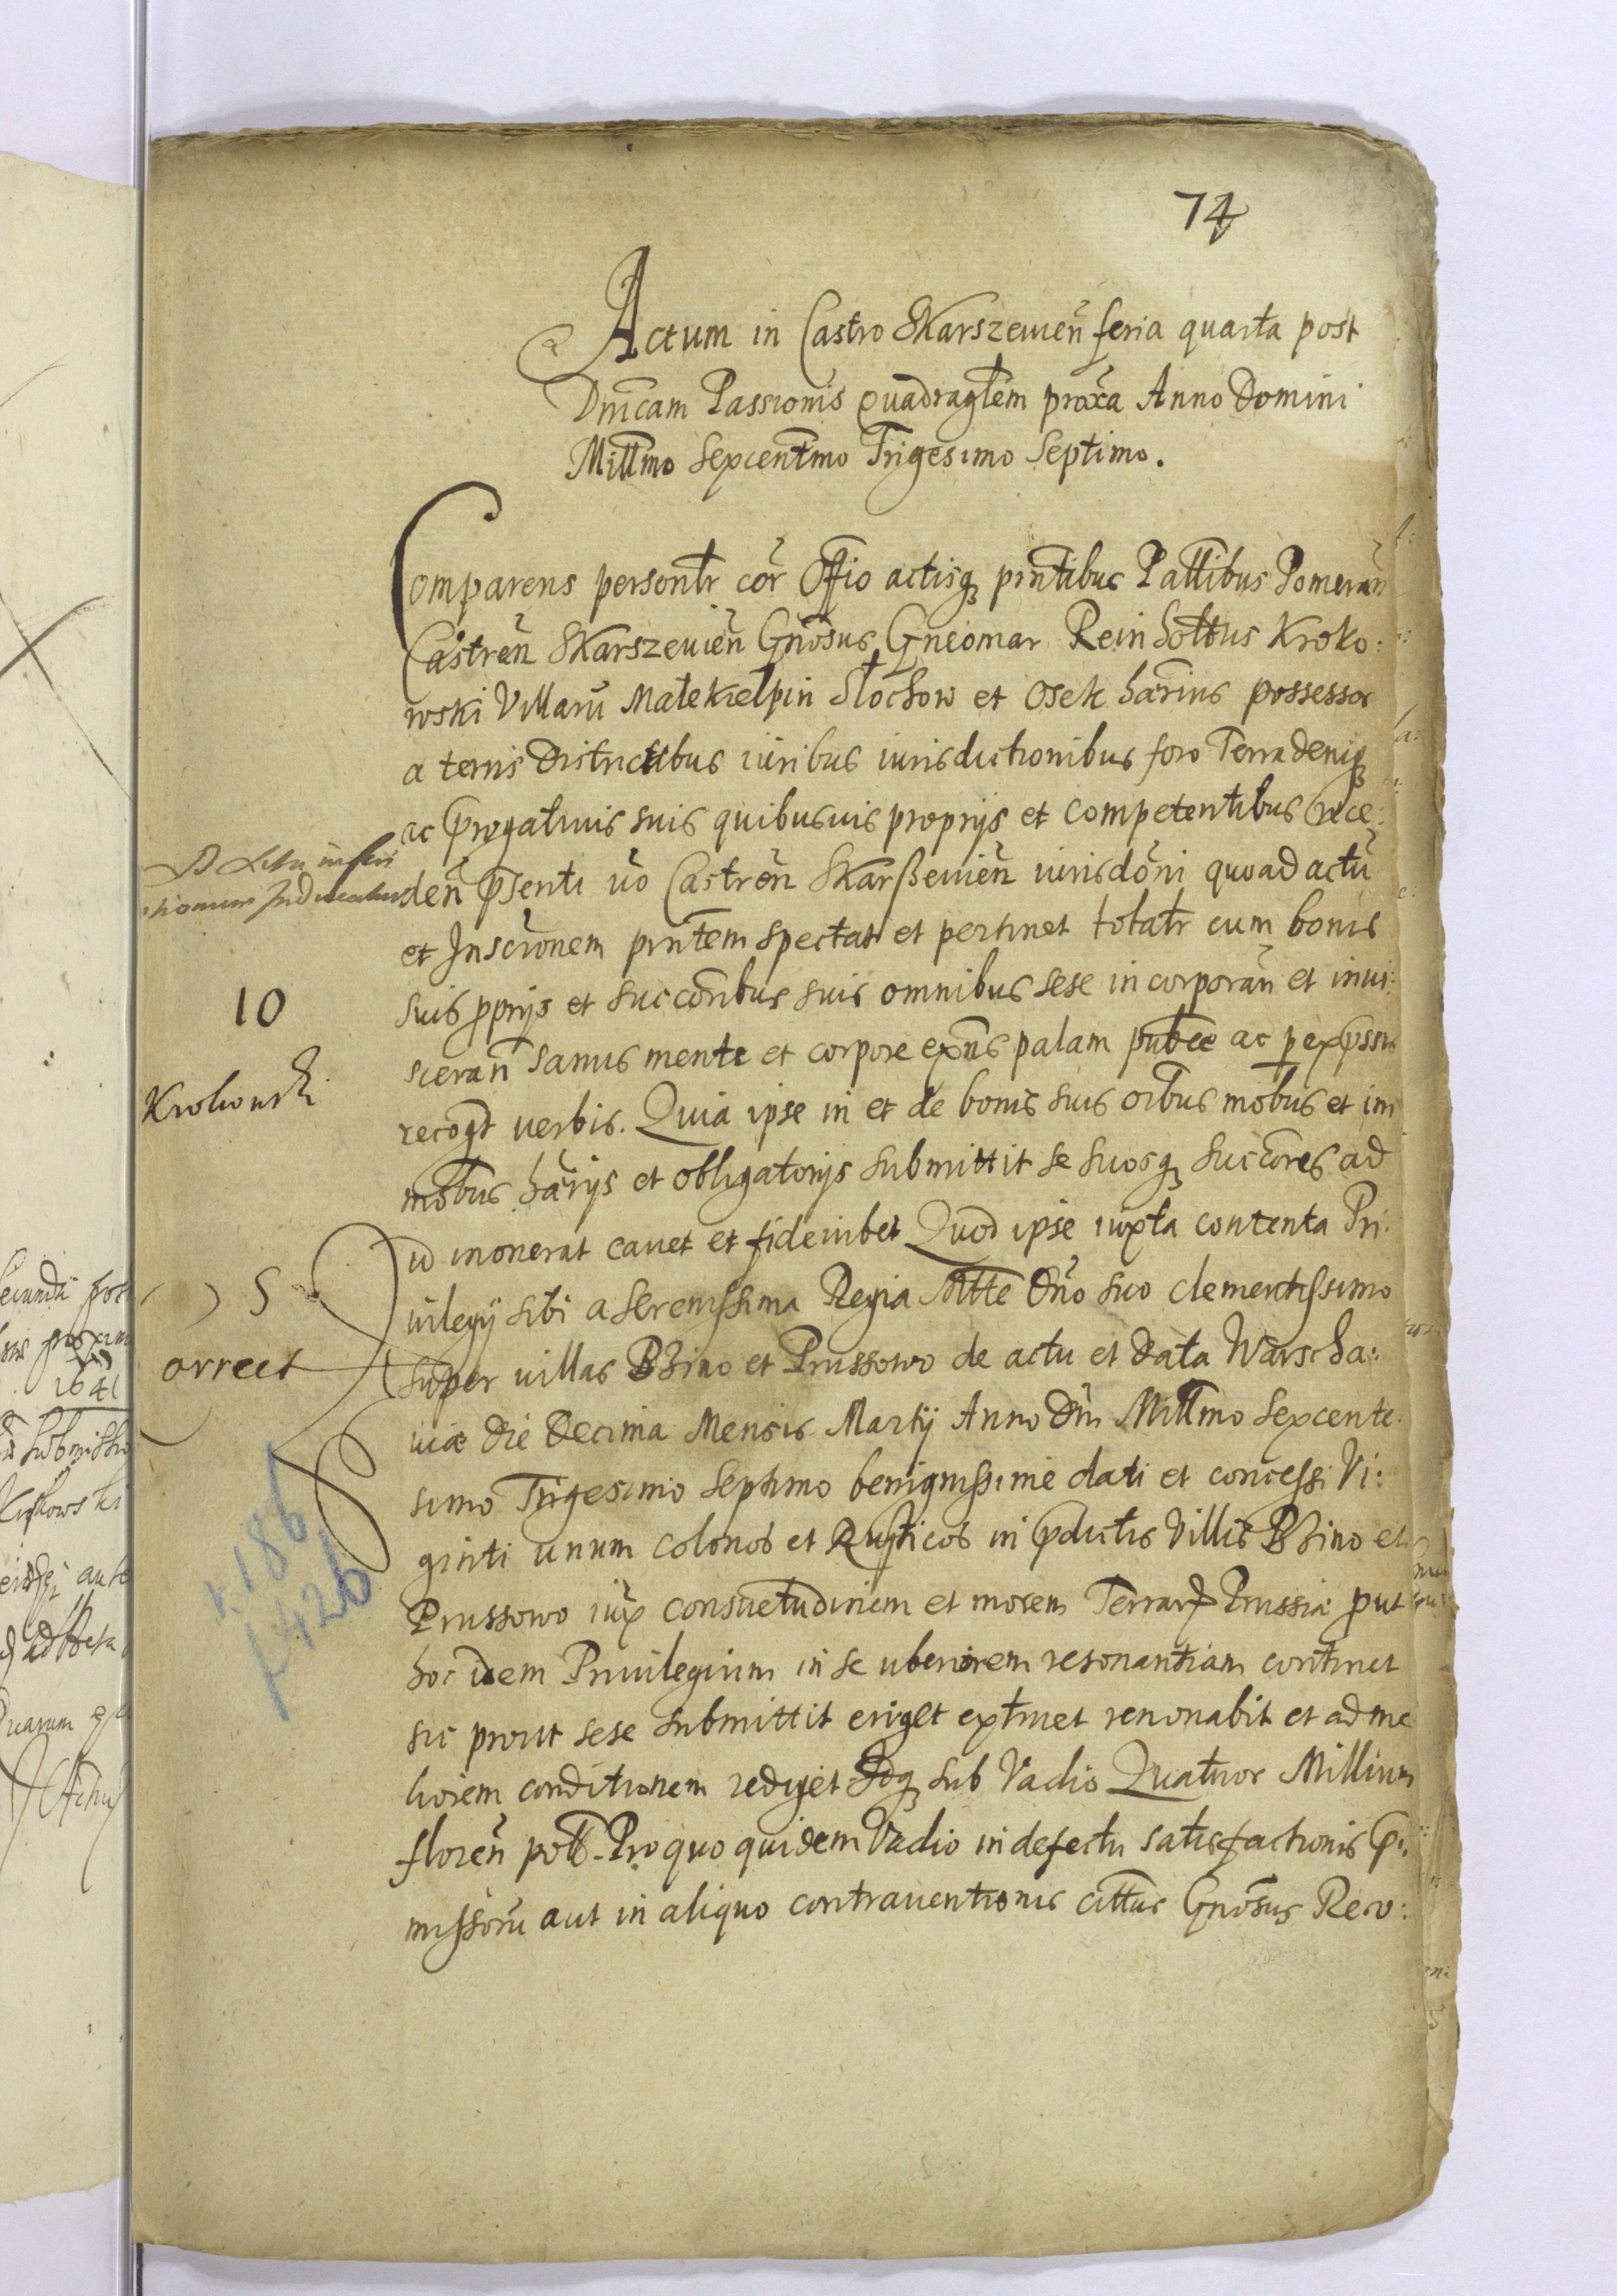 74
Actum in Castro Skarszeuień feria quarta post
Dnīcam Passionis Quadraglēm proxā Anno Domini
Millmo Sexcentmo Trigesimo Septimo.
Comparens personlr cor Offio actisq pnntibus Pallibus Pomerań
Castreń Skarszeuień Gnosus Gneomar Reinholtus Kroko:
wski Villarū Małekiełpin Słochow et Osek harius possessor
a terris Districtibus iuribus iurisdictionibus foro Terra deniq
ac prrogatiuis suis quibusuis proprijs et competentibus rece:
deń psenti uo Castreń Skarßeuień iurisdoni quoad actū
et Inscrionem pnntem spectat et pertinet totalr cum bonis
suis pprijs et succoribus suis omnibus sese incorporań et inui:
scerań sanus mente et corpore exns palam publce ac p expssis
recogt uerbis. Quia ipse in et de bonis suis oibus mobus et im
mobus harijs et obligatorijs submittit se suosq succores ad
id inonerat cauet et fideiubet Quod ipse iuxta contenta Pri:
uilegij sibi a serenissima Regia Mtte Dno suo clementissimo
super uillas Bzino et Prussowo de actu et data Warscha:
uiæ die Decima Mensis Martij Anno Dni Millmo Sexcente
simo Trigesimo Septimo benignissime dati et concessi Vi:
ginti unum colonos et Rusticos in pdictis Villis Bzino et
Prussowo iux consuetudinem et morem Terrarum Prussiæ put
hoc idem Priuilegium in se uberiorem resonantiam continet
sic prout sese submittit eriget extruet renouabit et ad me
liorem conditionem rediget Idq sub Vadio Quatuor Millium
floreń poll. Pro quo quidem Vadio in defectu satisfactionis p:
missorū aut in aliquo contrauentionis cittus Gnosus Reco:
10
Krokowski
S
orrect
k. 186
f 426